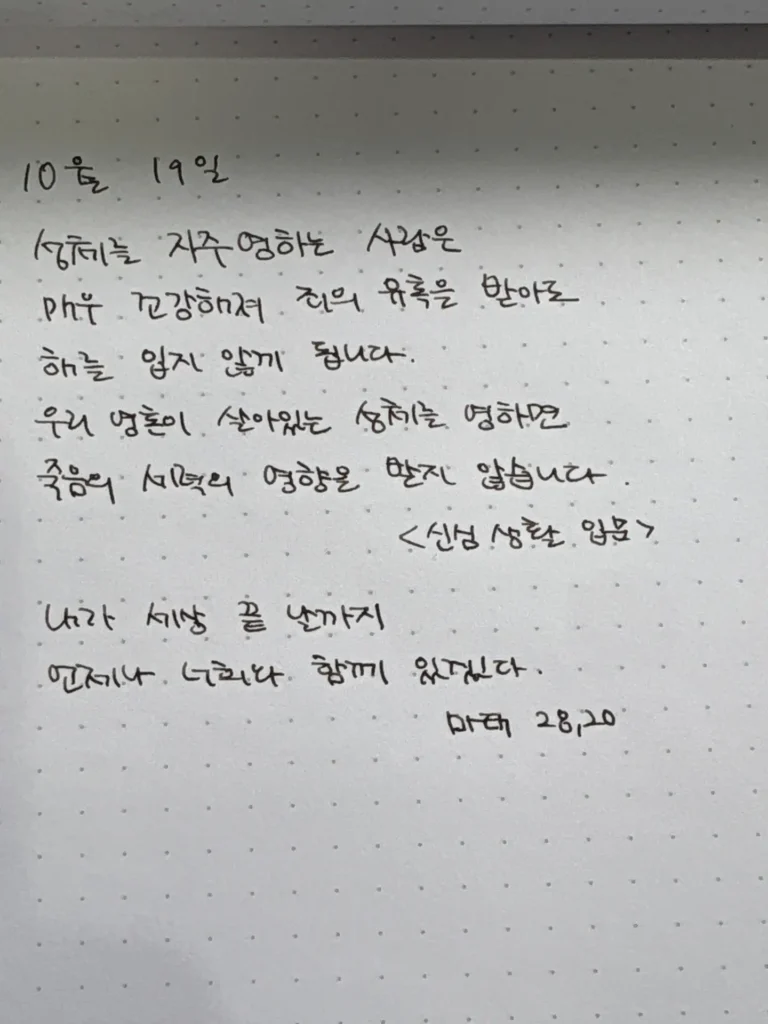 10월 19일
성체를 자주 영하는 사람은
매우 건강해져 죄의 유혹을 받아도
해를 입지 않게 됩니다.
우리 영혼이 살아있는 성체를 영하면
죽음의 세력의 영향을 받지 않습니다.
<신심 생활 입문>
내가 세상 끝 날까지
언제나 너희와 함께 있겠다.
마태 28,20